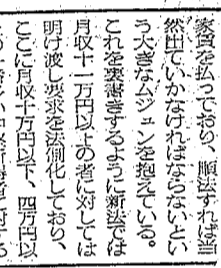 家賃を払っており、順法すれば当
然出ていかなければならないとい
う大きなムジュンを抱えている。
これを裏書きするように新法では
月収十一万円以上の者に対しては
明け渡し要求を法制化しており、
ここに月収十万円以下、四万円以